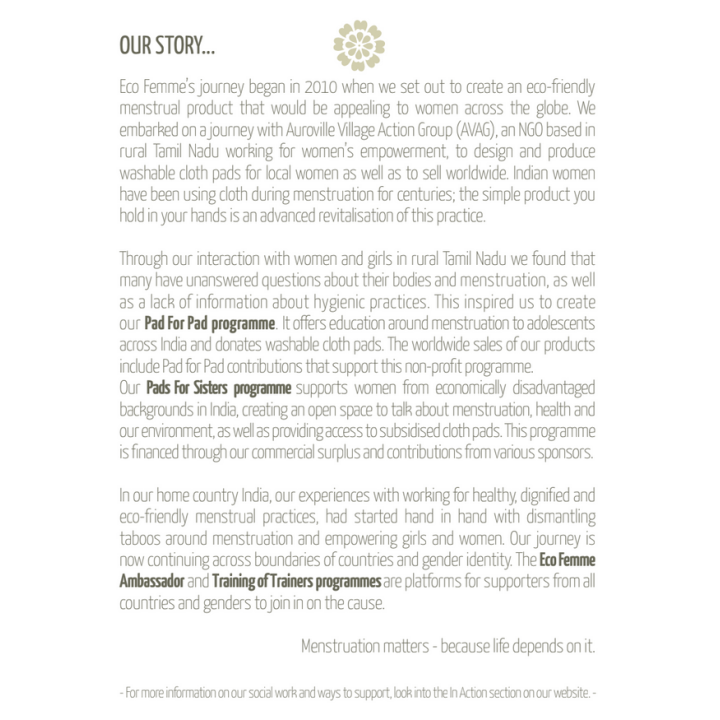 OUR STORY...
Eco Femme's journey began in 2010 when we set out to create an eco-friendly
menstrual product that would be appealing to women across the globe. We
embarked on a journey with Auroville Village Action Group (AVAG), an NGO based in
rural Tamil Nadu working for women's empowerment, to design and produce
washable cloth pads for local women as well as to sell worldwide. Indian women
have been using cloth during menstruation for centuries; the simple product you
hold in your hands is an advanced revitalisation of this practice.
Through our interaction with women and girls in rural Tamil Nadu we found that
many have unanswered questions about their bodies and menstruation, as well
as a lack of information about hygienic practices. This inspired us to create
our Pad For Pad programme. It offers education around menstruation to adolescents
across India and donates washable cloth pads. The worldwide sales of our products
include Pad for Pad contributions that support this non-profit programme.
Our Pads For Sisters programme supports women from economically disadvantaged
backgrounds in India, creating an open space to talk about menstruation, health and
our environment, as well as providing access to subsidised cloth pads. This programme
is financed through our commercial surplus and contributions from various sponsors.
In our home country India, our experiences with working for healthy, dignified and
eco-friendly menstrual practices, had started hand in hand with dismantling
taboos around menstruation and empowering girls and women. Our journey is
now continuing across boundaries of countries and gender identity. The Eco Femme
Ambassador and Training of Trainers programmes are platforms for supporters from all
countries and genders to join in on the cause.
Menstruation matters - because life depends on it.
- For more information on our social work and ways to support, look into the In Action section on our website. -